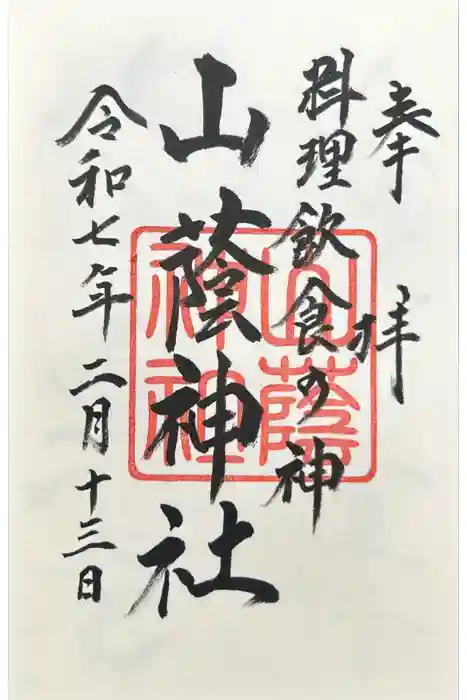 奉拝
料理飲食の神
山蔭神社
令和七年二月十三日
山蔭
神社